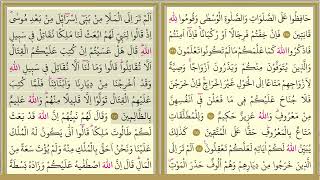 حَافِظُوا عَلَى الصَّلَوَاتِ وَالصَّلٰوةِ الْوُسْطٰى وَقُومُوا لِلّٰهِ
قَانِتِينَ فَاِنْ خِفْتُمْ فَرِجَالًا اَوْ رُكْبَانًا فَاِذَا اَمِنْتُمْ
فَاذْكُرُوا اللّٰهَ كَمَا عَلَّمَكُمْ مَا لَمْ تَكُونُوا تَعْلَمُونَ
وَالَّذِينَ يُتَوَفَّوْنَ مِنْكُمْ وَيَذَرُونَ اَزْوَاجًا وَصِيَّةً
لِاَزْوَاجِهِمْ مَتَاعًا اِلَى الْحَوْلِ غَيْرَ اِخْرَاجٍ فَاِنْ خَرَجْنَ
فَلَا جُنَاحَ عَلَيْكُمْ فِي مَا فَعَلْنَ فِي اَنْفُسِهِنَّ
مِنْ مَعْرُوفٍ وَاللّٰهُ عَزِيزٌ حَكِيمٌ وَلِلْمُطَلَّقَاتِ
مَتَاعٌ بِالْمَعْرُوفِ حَقًّا عَلَى الْمُتَّقِينَ كَذٰلِكَ
يُبَيِّنُ اللّٰهُ لَكُمْ اٰيَاتِهِ لَعَلَّكُمْ تَعْقِلُونَ اَلَمْ تَرَ اِلَى
الَّذِينَ خَرَجُوا مِنْ دِيَارِهِمْ وَهُمْ اُلُوفٌ حَذَرَ الْمَوْتِ
اَلَمْ تَرَ اِلَى الْمَلَاِ مِنْ بَنِي اِسْرَائِلَ مِنْ بَعْدِ مُوسٰى
اِذْ قَالُوا لِنَبِيٍّ لَهُمُ ابْعَثْ لَنَا مَلِكًا نُقَاتِلْ فِي سَبِيلِ
اللّٰهِ قَالَ هَلْ عَسَيْتُمْ اِنْ كُتِبَ عَلَيْكُمُ الْقِتَالُ
اَلَّا تُقَاتِلُوا قَالُوا وَمَا لَنَا اَلَّا نُقَاتِلَ فِي سَبِيلِ اللّٰهِ
وَقَدْ اُخْرِجْنَا مِنْ دِيَارِنَا وَاَبْنَائِنَا فَلَمَّا كُتِبَ
عَلَيْهِمُ الْقِتَالُ تَوَلَّوْا اِلَّا قَلِيلًا مِنْهُمْ وَاللّٰهُ عَلِيمٌ
بِالظَّالِمِينَ وَقَالَ لَهُمْ نَبِيُّهُمْ اِنَّ اللّٰهَ قَدْ بَعَثَ
لَكُمْ طَالُوتَ مَلِكًا قَالُوا اَنّٰى يَكُونُ لَهُ الْمُلْكُ
عَلَيْنَا وَنَحْنُ اَحَقُّ بِالْمُلْكِ مِنْهُ وَلَمْ يُؤْتَ سَعَةً مِنَ
الْمَالِ قَالَ اِنَّ اللّٰهَ اصْطَفٰيهُ عَلَيْكُمْ وَزَادَهُ بَسْطَةً